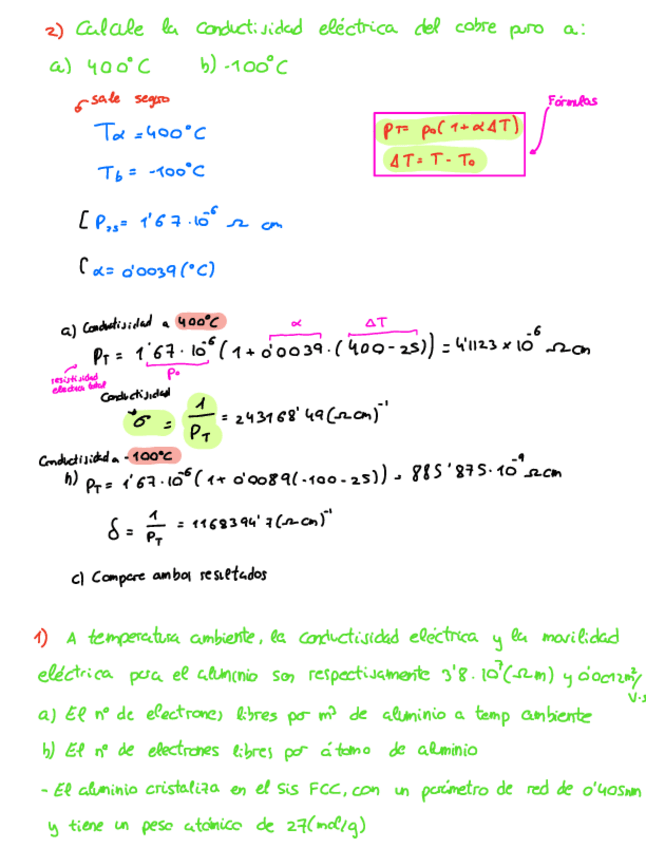 2) Calcule la conductividad eléctrica del cobre puro a:
a) 400°C b) -100°C
sale seguro
Fórmulas
Ta = 400°C
Tb = -100°C
ρT = ρ0(1+αΔT)
ΔT = T - T0
[ρ25 = 1'67·10^-6 Ω cm
(α = 0'0039(°C)
a) Conductividad a 400°C
α ΔT
ρT = 1'67·10^-6(1+0'0039·(400-25)) = 4'1123×10^-6 Ωcm
ρ0
resistividad
eléctrica total
Conductividad
σ = 1/ρT = 243168'49(Ωcm)^-1
Conductividad a -100°C
b) ρT = 1'67·10^-6(1+0'0089(-100-25)) = 885'875·10^-9 Ωcm
δ = 1/ρT = 1168394'7(Ωcm)^-1
c) Compare ambos resultados
1) A temperatura ambiente, la conductividad eléctrica y la movilidad
eléctrica para el aluminio son respectivamente 3'8·10^7(Ωm) y 0'0012m²/
V·s
a) El nº de electrones libres por m³ de aluminio a temp ambiente
b) El nº de electrones libres por átomo de aluminio
- El aluminio cristaliza en el sis FCC, con un parámetro de red de 0'405nm
y tiene un peso atómico de 27(mol/g)